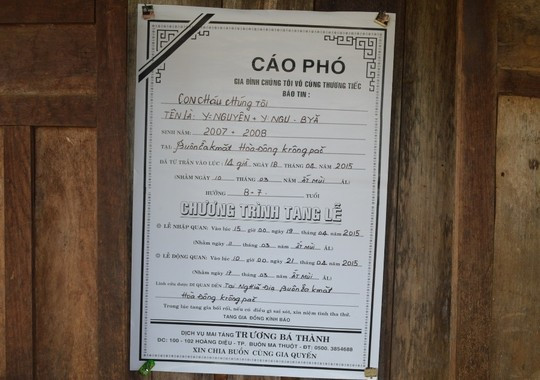 CÁO PHÓ
GIA ĐÌNH CHÚNG TÔI VÔ CÙNG THƯƠNG TIẾC
BÁO TIN :
CON CHÁU CHÚNG TÔI
TÊN LÀ: Y-NGUYÊN + Y NGU - BYĂ
SINH NĂM: 2007 + 2008
TẠI: Buôn Ea kmăt Hòa Đông krông păk
ĐÃ TỪ TRẦN VÀO LÚC: 14 giờ NGÀY 18 THÁNG 04 NĂM 2015
(NHẰM NGÀY 10 THÁNG 03 NĂM ẤT MÙI ÂL)
HƯỞNG 8 - 7 TUỔI
CHƯƠNG TRÌNH TANG LỄ
LỄ NHẬP QUAN: Vào lúc 15 giờ 00 ngày 19 tháng 04 năm 2015
(Nhằm ngày 11 tháng 03 năm ẤT MÙI ÂL)
LỄ ĐỘNG QUAN: Vào lúc 10 giờ 00 ngày 21 tháng 04 năm 2015
(Nhằm ngày 17 tháng 03 năm ẤT MÙI ÂL)
Linh cữu được DI QUAN ĐẾN Tại Nghĩa Địa Buôn Ea kmăt
Hòa Đông krông păk
Trong lúc tang gia bối rối, nếu có điều gì sai sót, xin niệm tình tha thứ.
TANG GIA ĐỒNG KÍNH BÁO
DỊCH VỤ MAI TÁNG TRƯƠNG BÁ THÀNH
ĐC: 100 - 102 HOÀNG DIỆU - TP. BUÔN MA THUỘT - ĐT: 0500. 3854688
XIN CHIA BUỒN CÙNG GIA QUYẾN